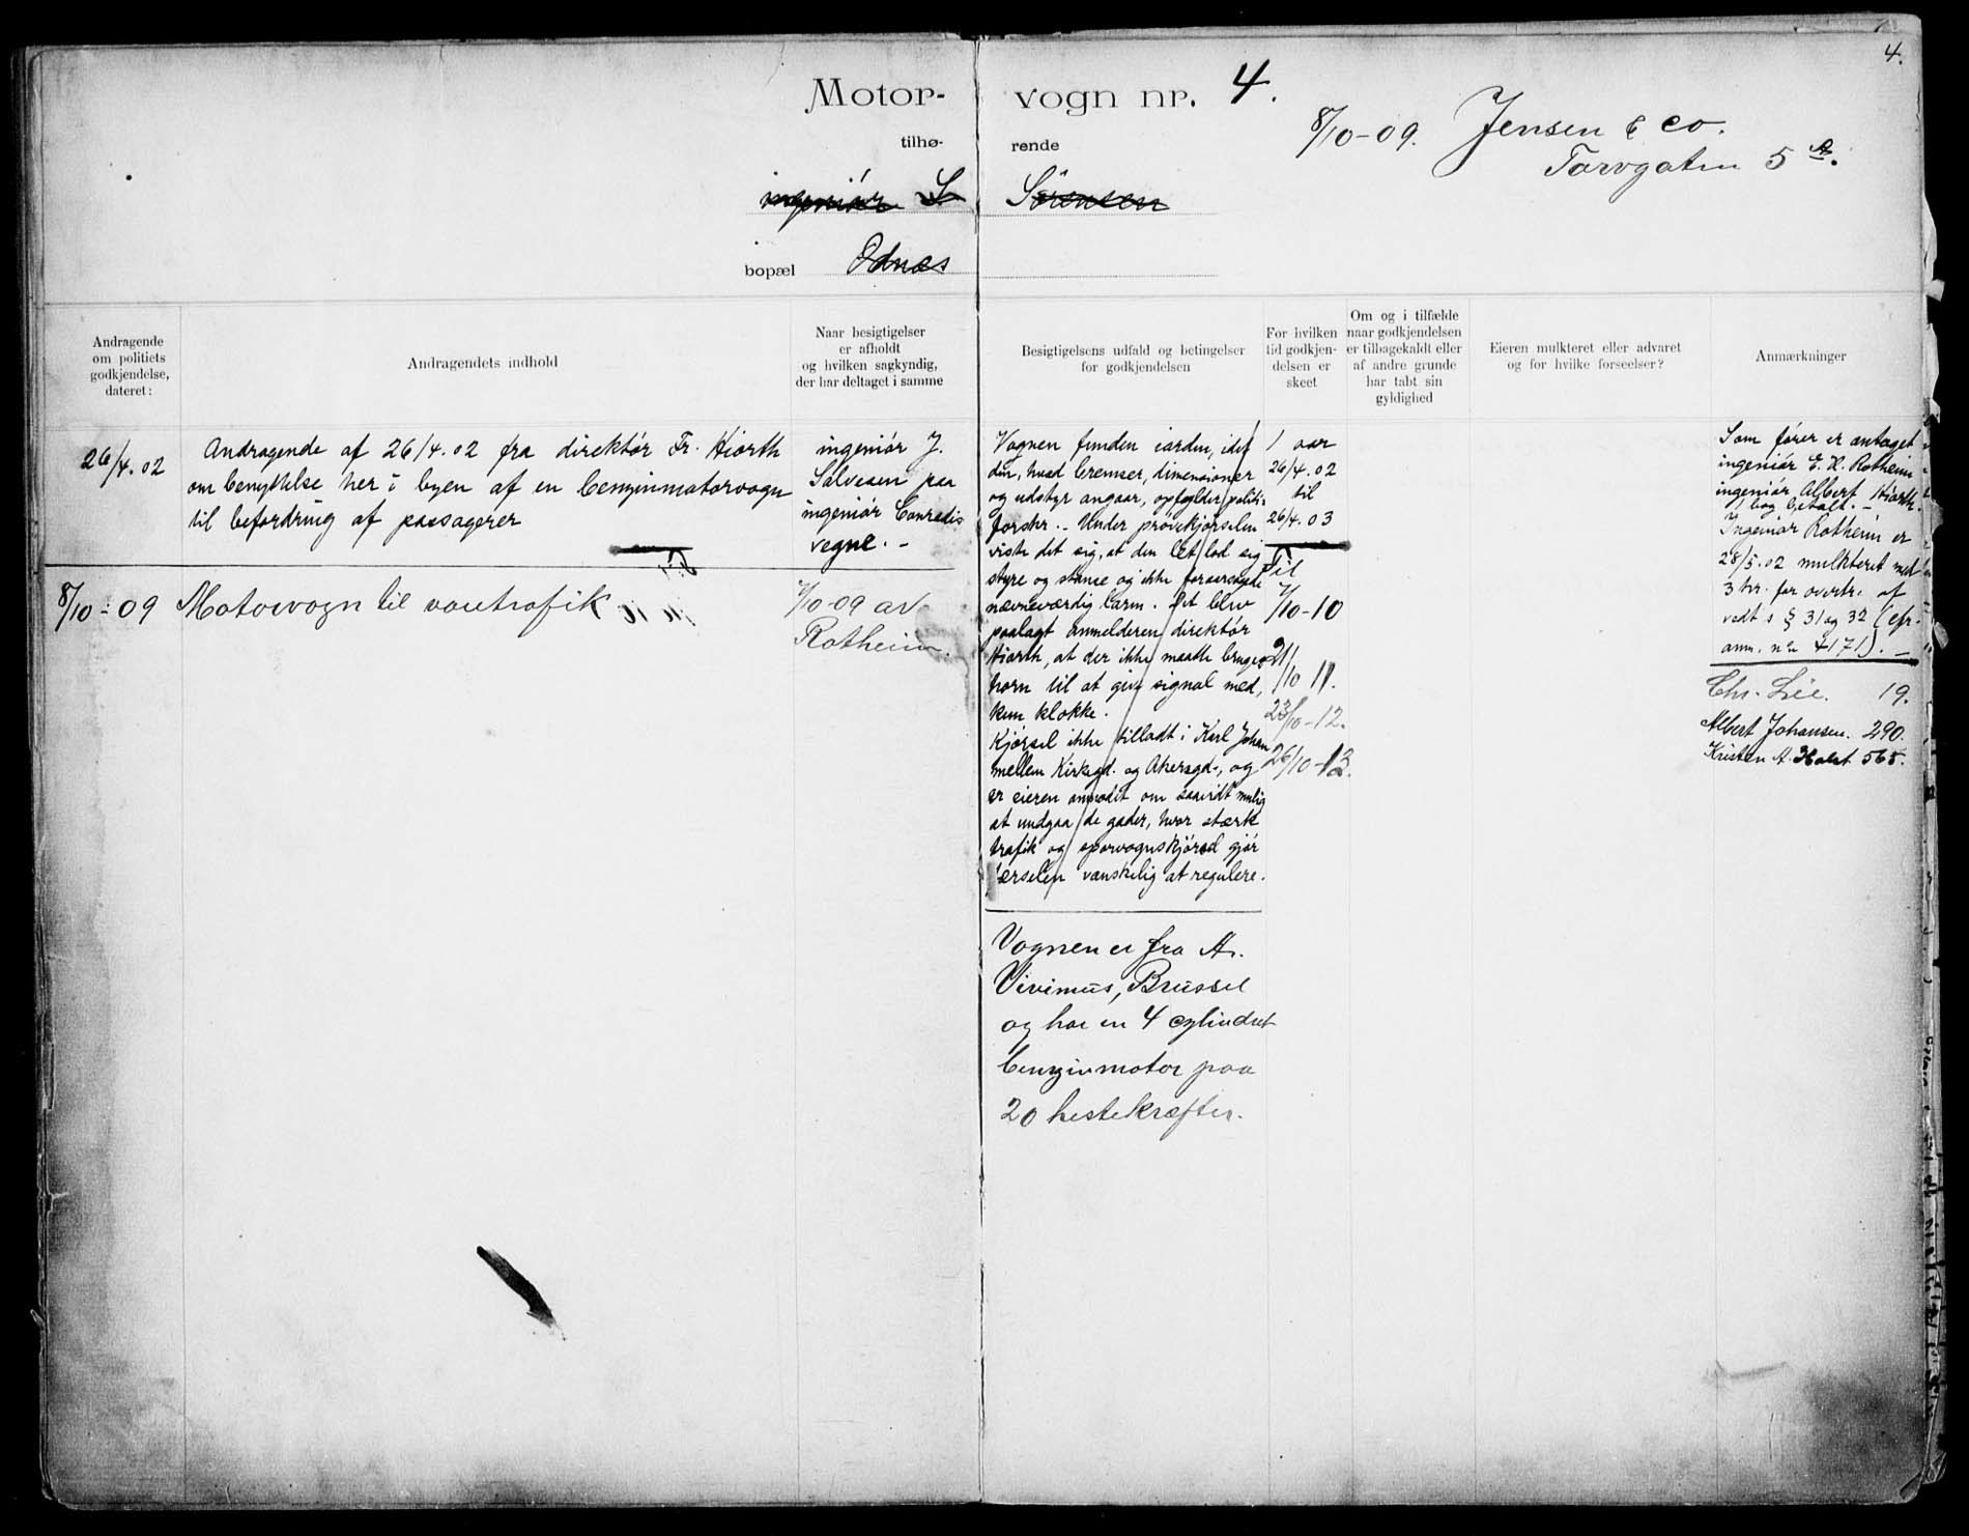 4.
Motor- vogn nr. 4.
tilhø- rende
ingeniör S Sörensen
bopæl Odnæs
8/10-09. Jensen & co.
Torvgaten 5 A.
Andragende
om politiets
godkjendelse,
dateret:
Andragendets indhold
Naar besigtigelser
er afholdt
og hvilken sagkyndig,
der har deltaget i samme
Besigtigelsens udfald og betingelser
for godkjendelsen
For hvilken
tid godkjen-
delsen er
skeet
Om og i tilfælde
naar godkjendelsen
er tilbagekaldt eller
af andre grunde
har tabt sin
gyldighed
Eieren mulkteret eller advaret
og for hvilke forseelser?
Anmærkninger
26/4.02
Andragende af 26/4.02 fra direktör Fr. Hiorth
om benyttelse her i byen af en benzinmotorvogn
til befordring af passagerer
ingeniör J.
Salvesen paa
ingeniör Conradis
vegne. -
Vognen funden iorden, idet
den, hvad bremser, dimensioner
og udstyr angaar, opfylder politi-
forskr. - Under prövekjörselen
viste det sig, at den let lod sig
styre og stanse og ikke foraarsagede
nævneværdig larm. Det blev
paalagt anmelderen direktör
Hiorth, at der ikke maatte bruges
horn til at give signal med,
kun klokke.
Kjörsel ikke tilladt i Karl Johan
mellem Kirkegd. og Akersgd., og
er eieren anmodet om saavidt mulig
at undgaa de gader, hvor stærk
trafik og sporvognskjörsel gjör
færselen vanskelig at regulere.
1 aar
26/4.02
til
26/4.03
Som förer er antaget
ingeniör E. H. Rotheim
ingeniör Albert Hiorth.
bog betalt. -
Ingeniör Rotheim er
28/5.02 mulkteret med
3 kr. for overtr. af
vedt s § 31 og 32 (cfr.
anm. nr 4171). -
8/10-09
Motorvogn til varetrafik
7/10-09 av
Rotheim.
Vognen er fra A.
Vivinus, Brüssel
og har en 4 cylindret
benzinmotor paa
20 hestekræfter.
Til
7/10-10
21/10 11.
23/10-12.
26/10-13.
Chr. Lie. 19.
Albert Johansen. 290.
Kristen A. Holst 565.